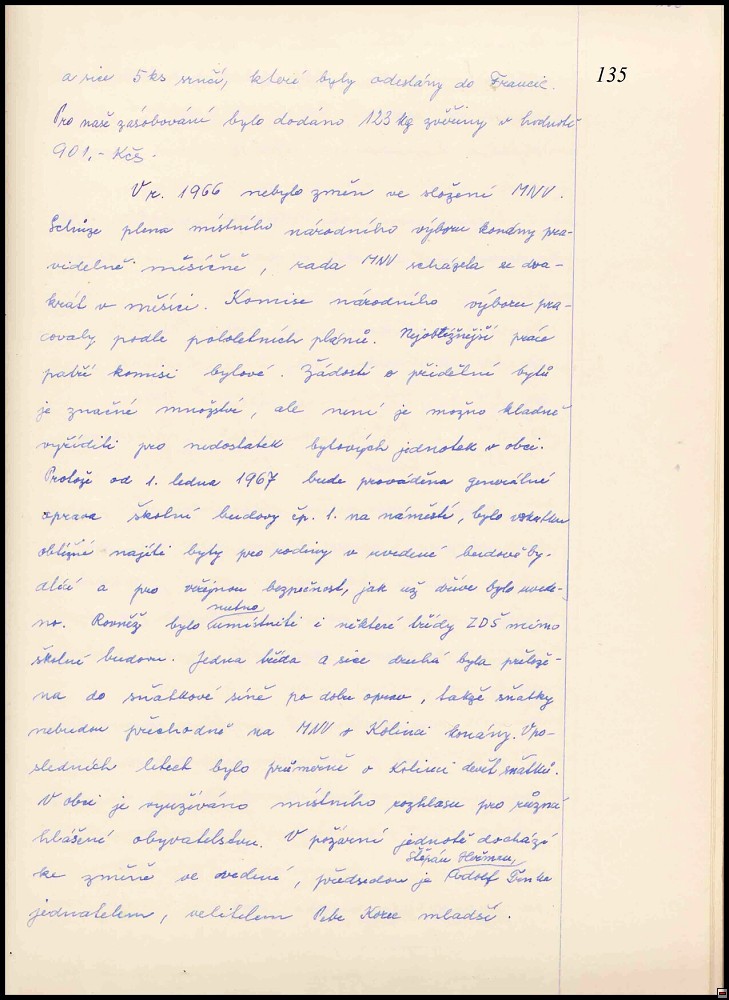 135
a sice 5 ks srnčí, které byly odeslány do Francie.
Pro naše zásobování bylo dodáno 123 kg zvěřiny v hodnotě
901,- Kčs.
V r. 1966 nebylo změn ve složení MNV.
Schůze plena místního národního výboru konány pra-
videlně měsíčně, rada MNV scházela se dva-
krát v měsíci. Komise národního výboru pra-
covaly podle pololetních plánů. Nejobtížnější práce
patří komisi bytové. Žádostí o přidělení bytů
je značné množství, ale není je možno kladně
vyříditi pro nedostatek bytových jednotek v obci.
Protože od 1. ledna 1967 bude prováděna generální
oprava školní budovy čp. 1. na náměstí, bylo vskutku
obtížné najíti byty pro rodiny v uvedené budově by-
dlící a pro veřejnou bezpečnost, jak už dříve bylo uvede-
no. Rovněž bylo nutno umístniti i některé třídy ZDŠ mimo
školní budovu. Jedna třída a sice druhá byla přelože-
na do sňatkové síně po dobu oprav, takže sňatky
nebudou přechodně na MNV v Kolinci konány. Vpo-
sledních letech bylo průměrně v Kolinci devět sňatků.
V obci je využíváno místního rozhlasu pro různá
hlášení obyvatelstvu. V požární jednotě dochází
ke změně ve vedení, předsedou je Štěpán Heřman, Rudolf
jednatelem, velitelem Petr mladší.